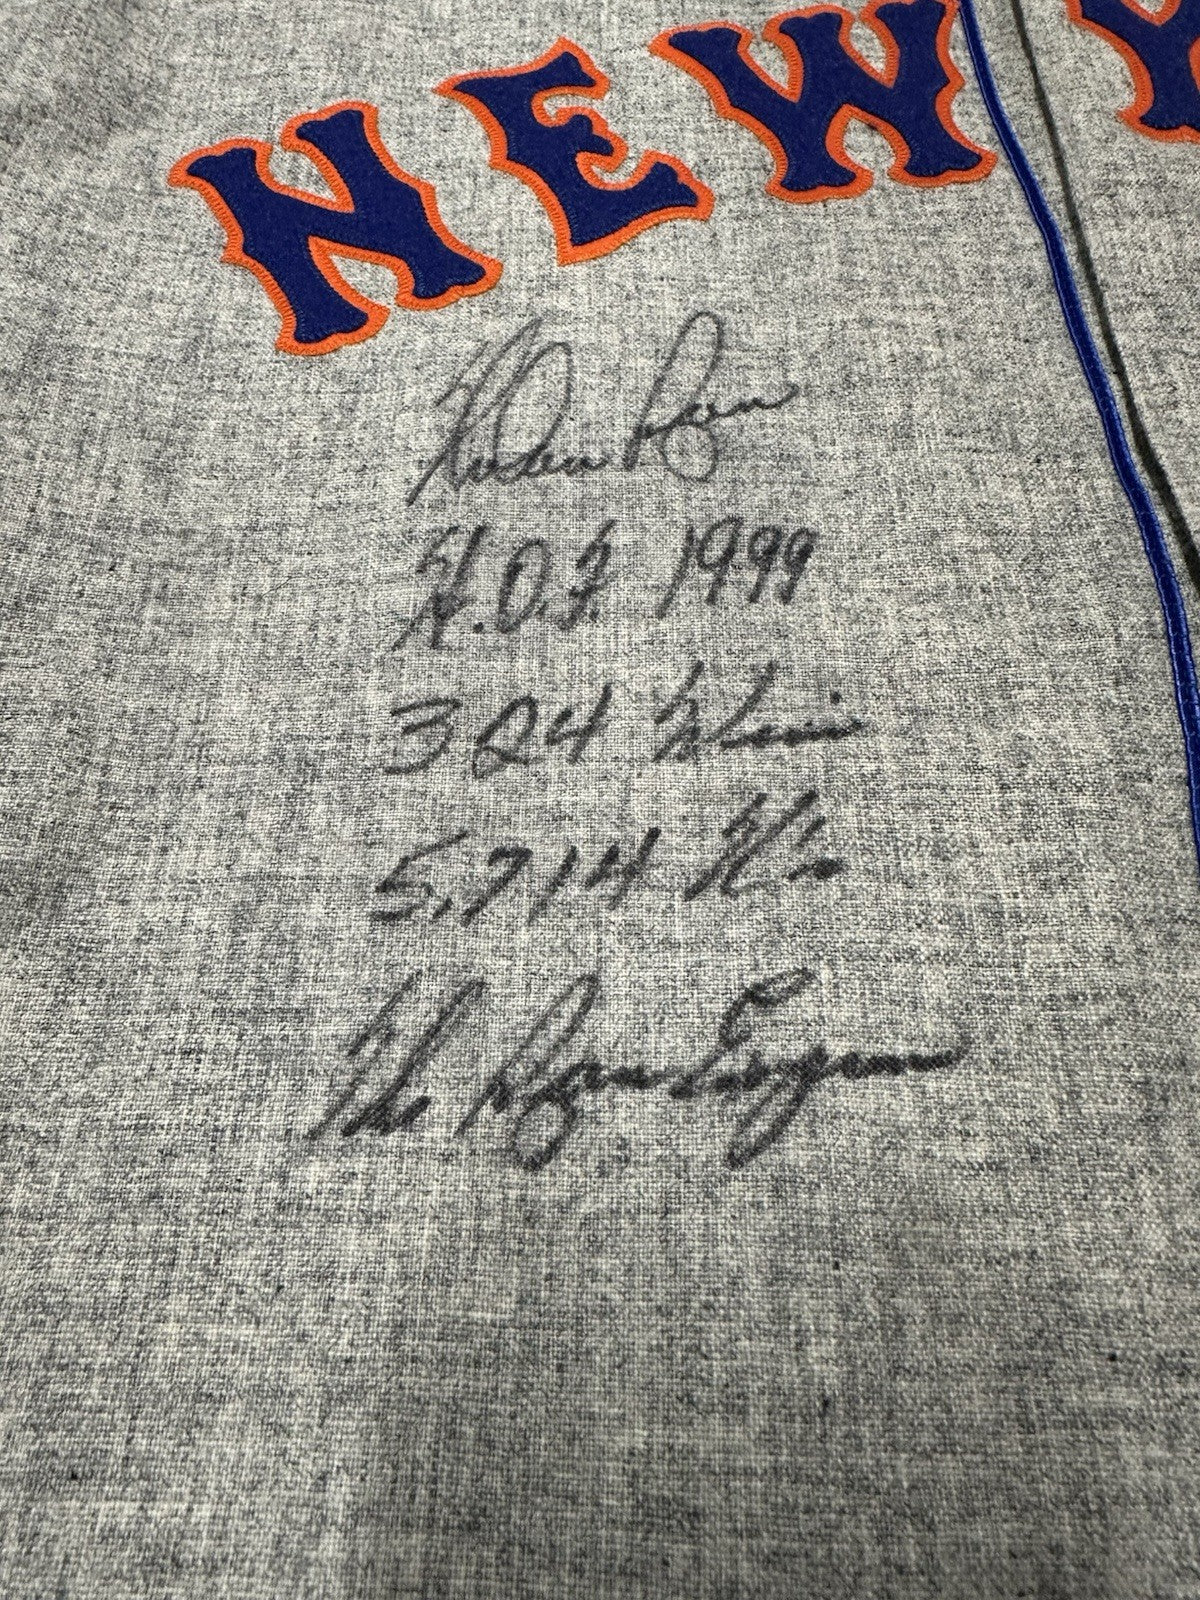 NEW Y
Nolan Ryan
H.O.F. 1999
324 Wins
5,714 K's
The Ryan Express